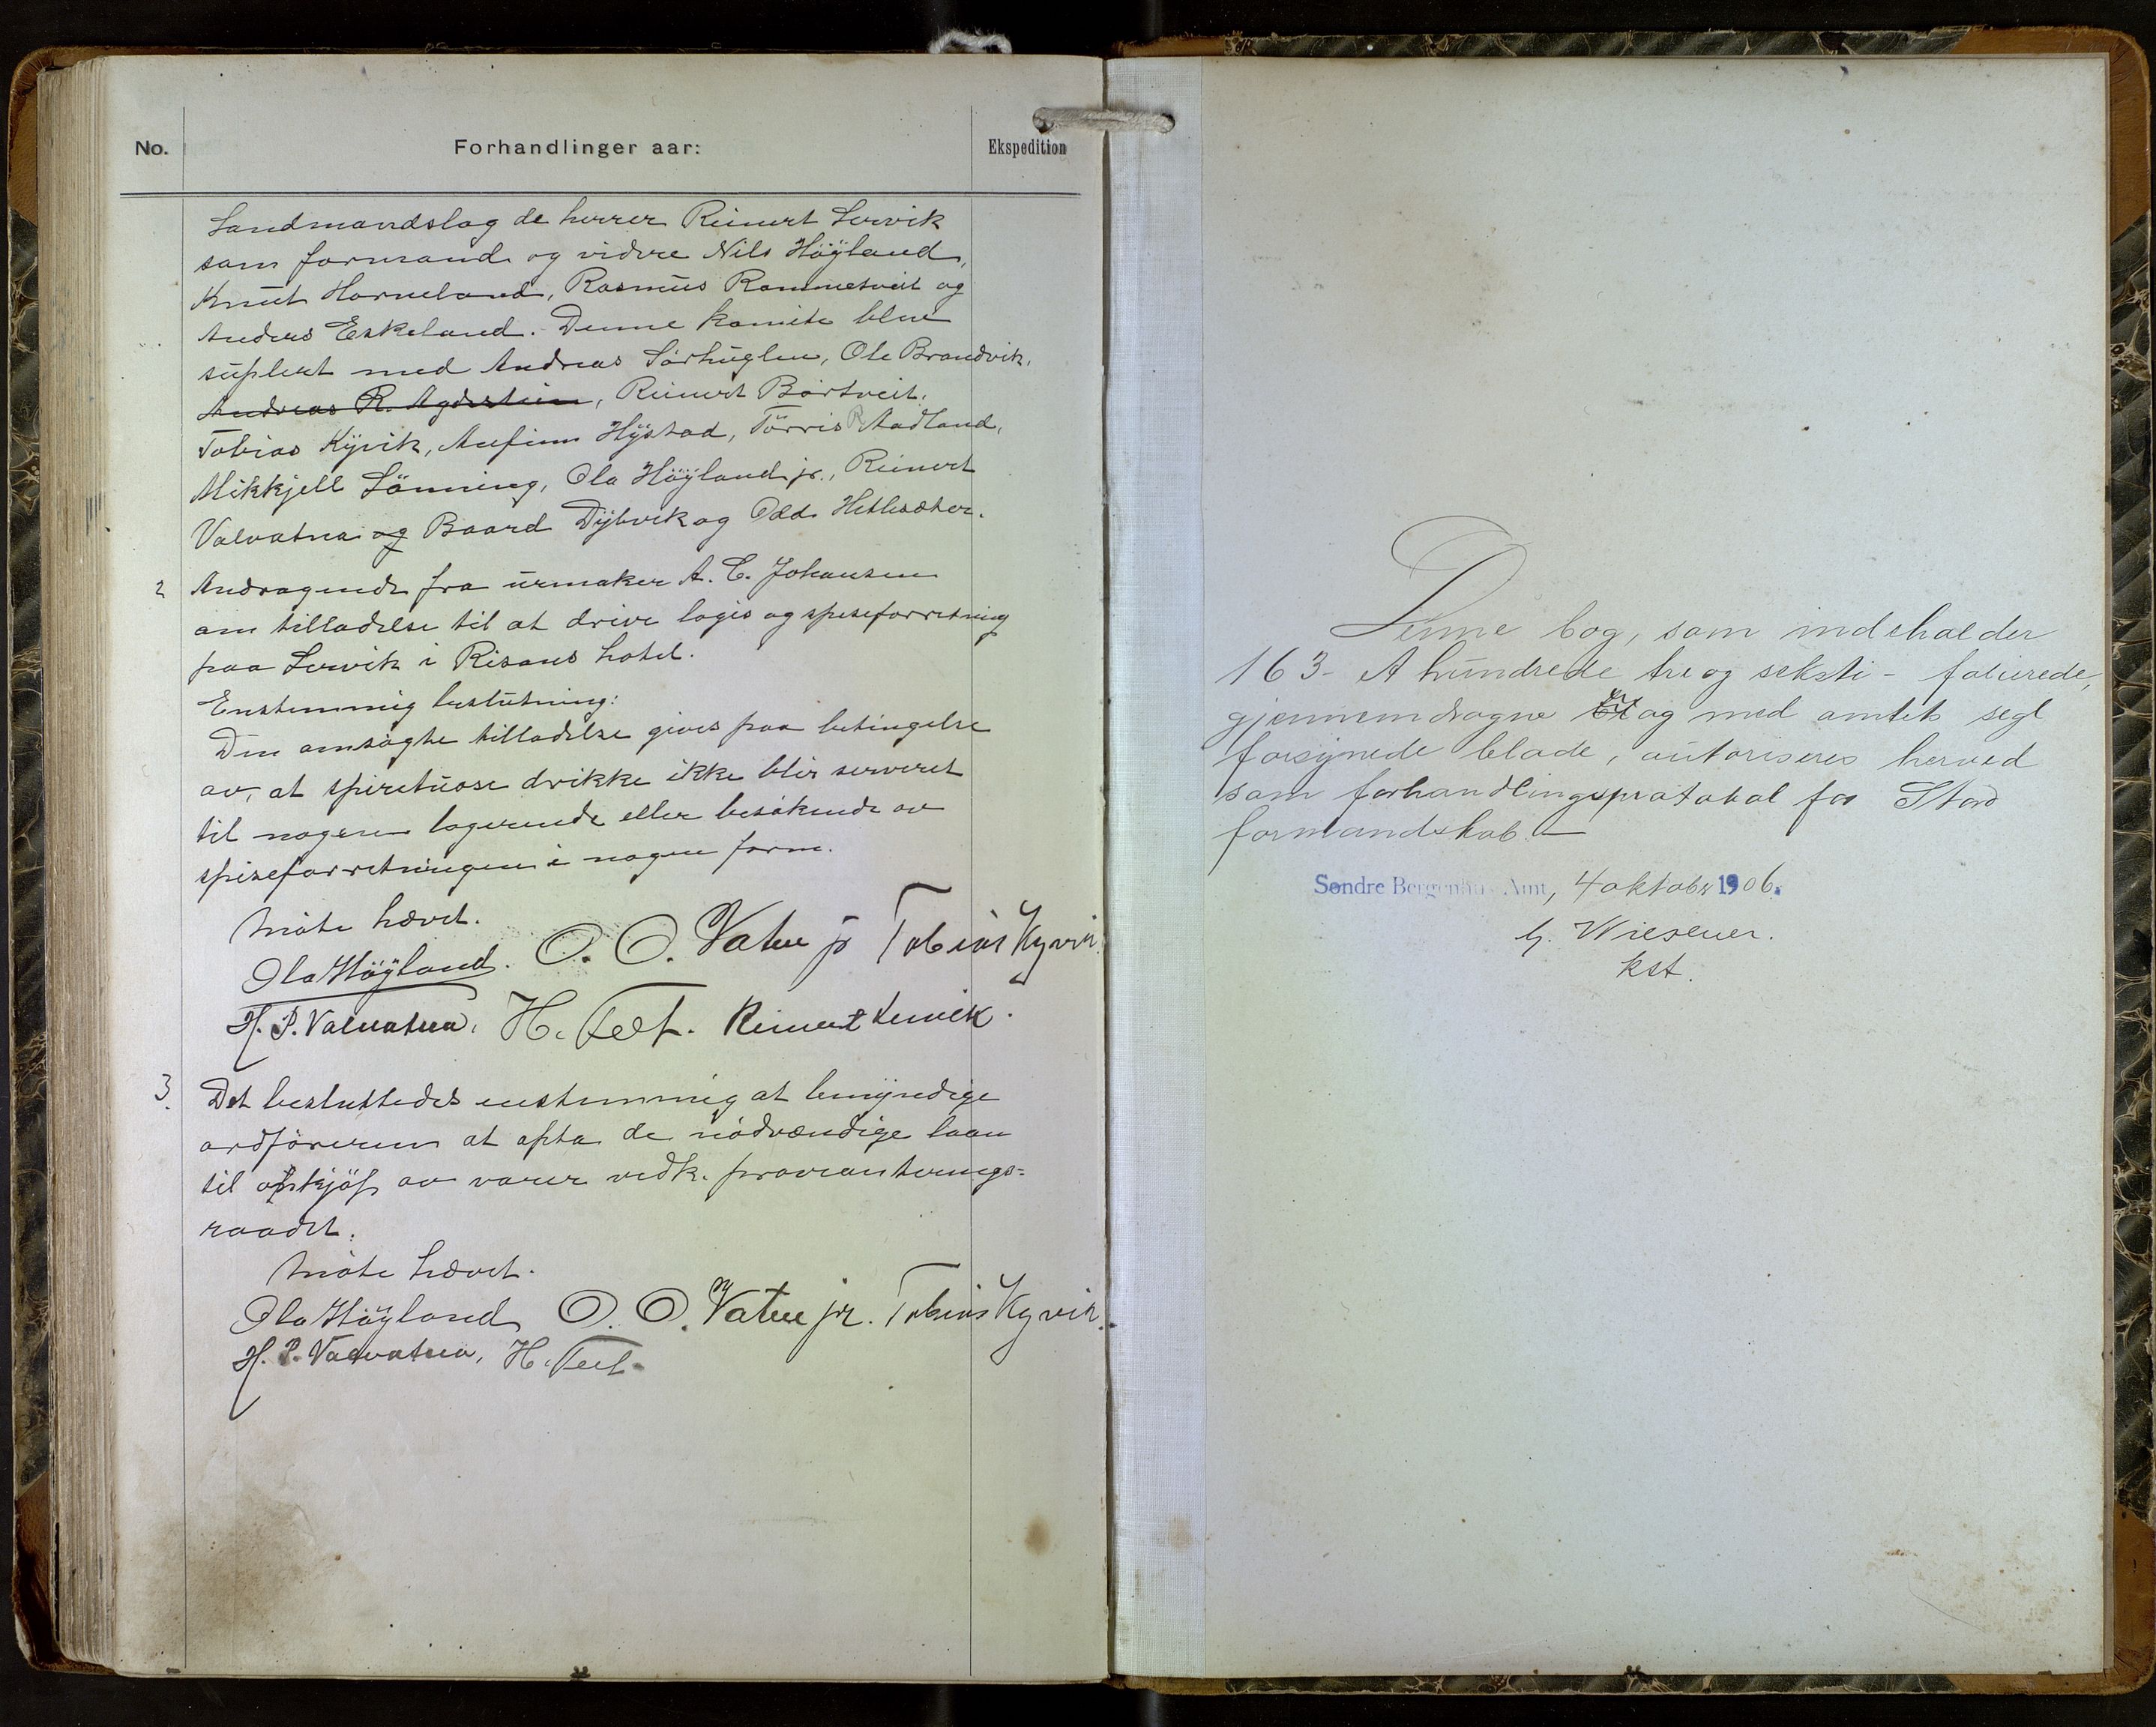 No.
Forhandlinger aar:
Ekspedition
Landmandslag de herrer Reinert Lervik
som formand og vidre Nils Höÿland,
Knut Horneland, Rasmus Rommetveit og
Anders Eskeland. Denne komite blev
suplert med Andreas Sörhuglen, Ole Brandvik,
Andreas R. Agdestein, Reinert Börtveit,
Tobias Kÿvik, Anfinn Hÿstad, Törris R Aadland,
Mikkjell Lönning, Ola Höÿland jr., Reinert
Valvatna og Baard Dÿbvik og Odd Hetlesæter.
2 Andragende fra urmaker A. C. Johansen
om tilladelse til at drive logis og speseforretning
paa Lervik i Risøens hotel.
Enstemmig beslutning:
Den omsögte tilladelse gives paa betingelse
av, at spirituose drikke ikke blir serveret
til nogen logerende eller besökende av
spiseforretningen i nogen form.
Möte hævet.
Ola Höÿland. O. O. Vatne jr Tobias Kyvik.
H. P. Valvatna. H. Teef. Reinert Lervik.
3. Det besluttedes enstemmig at bemÿndige
ordföreren at opta de nödvændige laan
til opkjöp av varer vedk. provianterings=
raadet.
Möte hævet.
Ola Höÿland O. O. Vatne jr. Tobias Kyvik.
H. P. Valvatna, H. Teef.
Denne bog, som indeholder
163 - Et hundrede tre og seksti - folierede,
gjennemdragne og med amtets segl
forsynede blade, autoriseres herved
som forhandlingsprotokol for Stord
formandskab. -
Søndre Bergenhus Amt, 4 oktober 1906.
Wiesener.
kst.